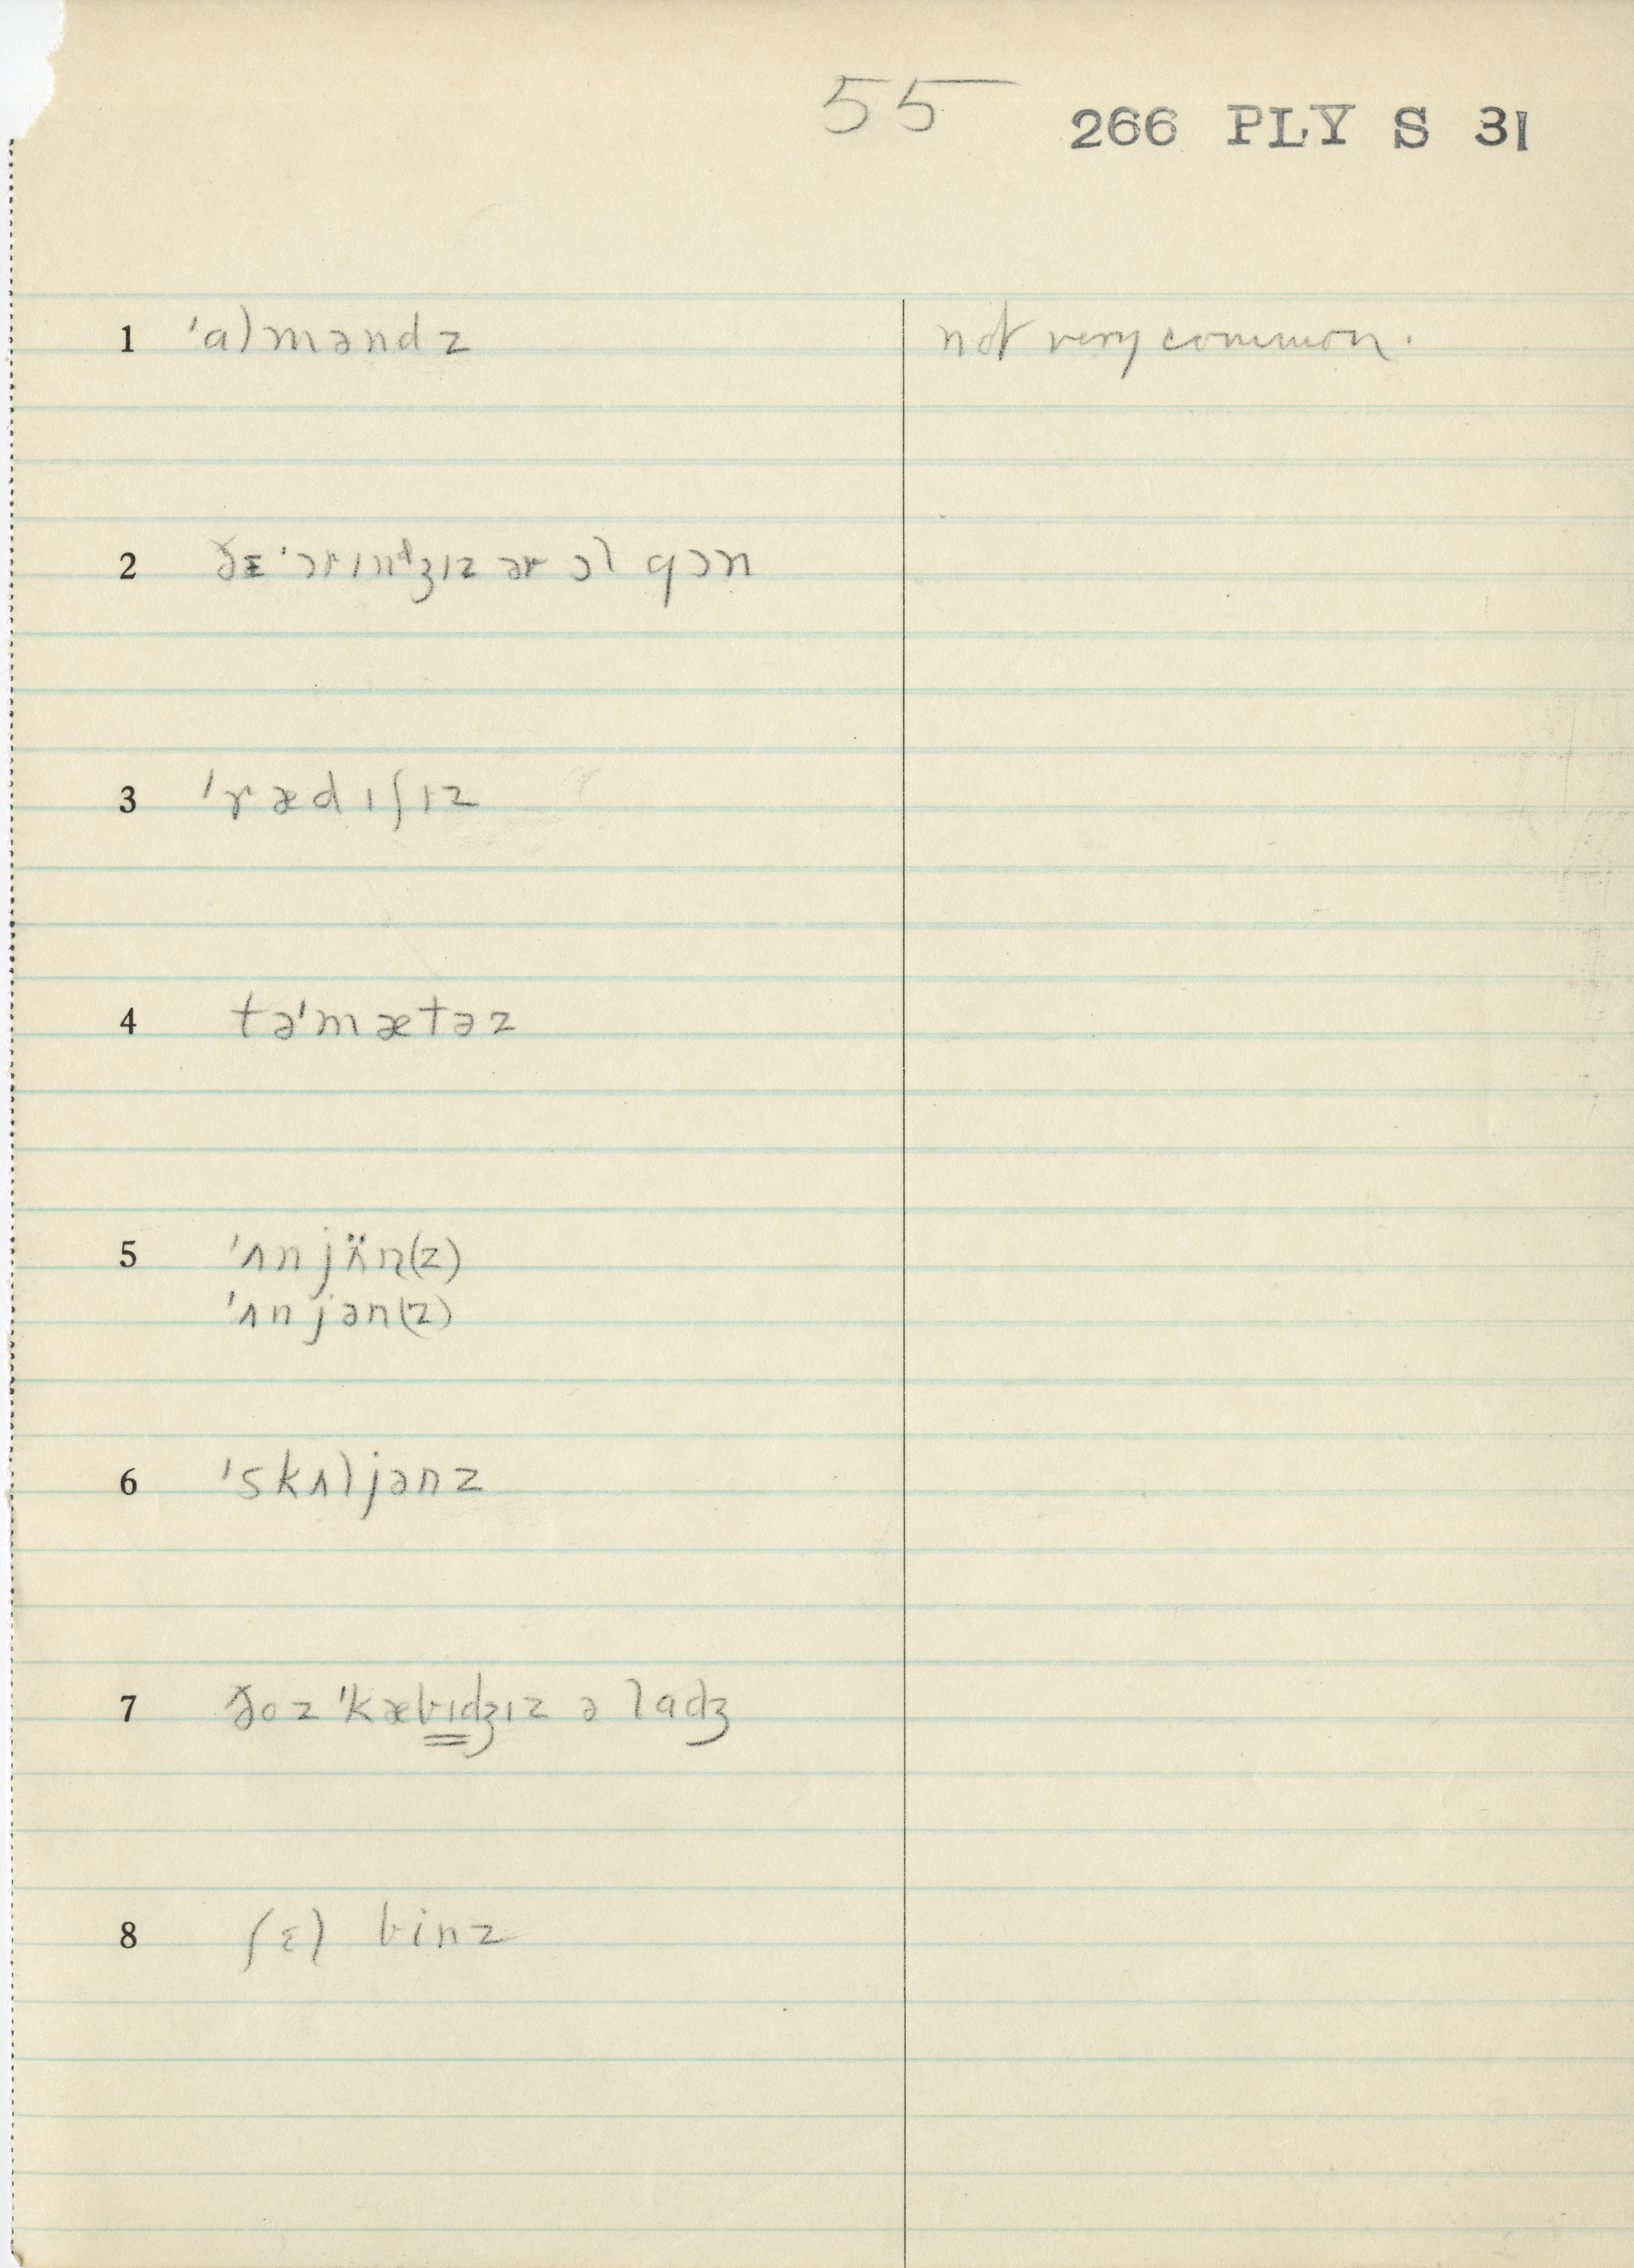 55 266 PLY S 31
1 ˈalməndz not very common.
2 ðɪ ˈɔrɪnᵈʒɪz ər ɔl gɔn
3 ˈrædɪʃɪz
4 təˈmætəz
5 ˈʌnjʌ̈n(z)
ˈʌnjən(z)
6 ˈskʌljənz
7 ðoz ˈkæbɪdʒɪz ə ladʒ
8 ʃɛl binz